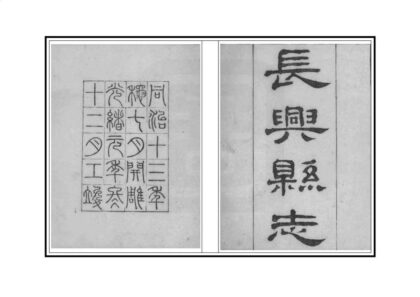 長興縣志
同治十三年
秋七月開雕
光緒元年冬
十二月工竣